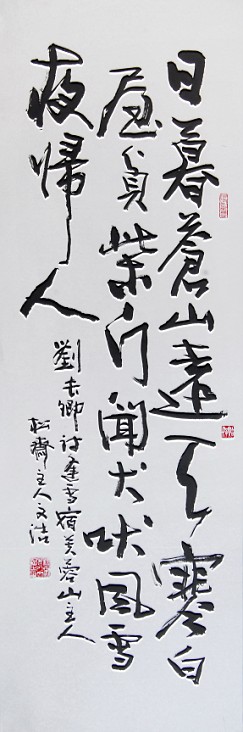 日暮蒼山遠天寒白
屋貧柴门聞犬吠風雪
夜歸人
劉长卿诗逢雪宿芙蓉山主人
松齋主人文洁